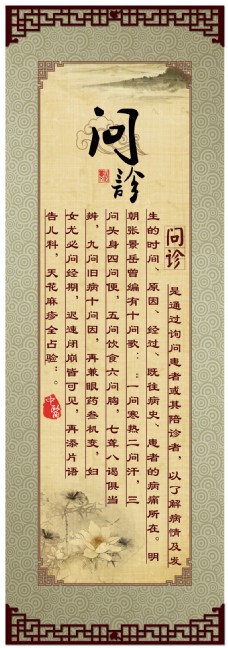 问診
问诊
是通过询问患者或其陪诊者，以了解病情及发
生的时间、原因、经过、既往病史、患者的病痛所在。明
朝张景岳曾编有十问歌：：一问寒热二问汗，三
问头身四问便，五问饮食六问胸，七聋八渴俱当
辨，九问旧病十问因，再兼服药参机变，妇
女尤必问经期，迟速闭崩皆可见，再添片语
告儿科，天花麻疹全占验：。
中医